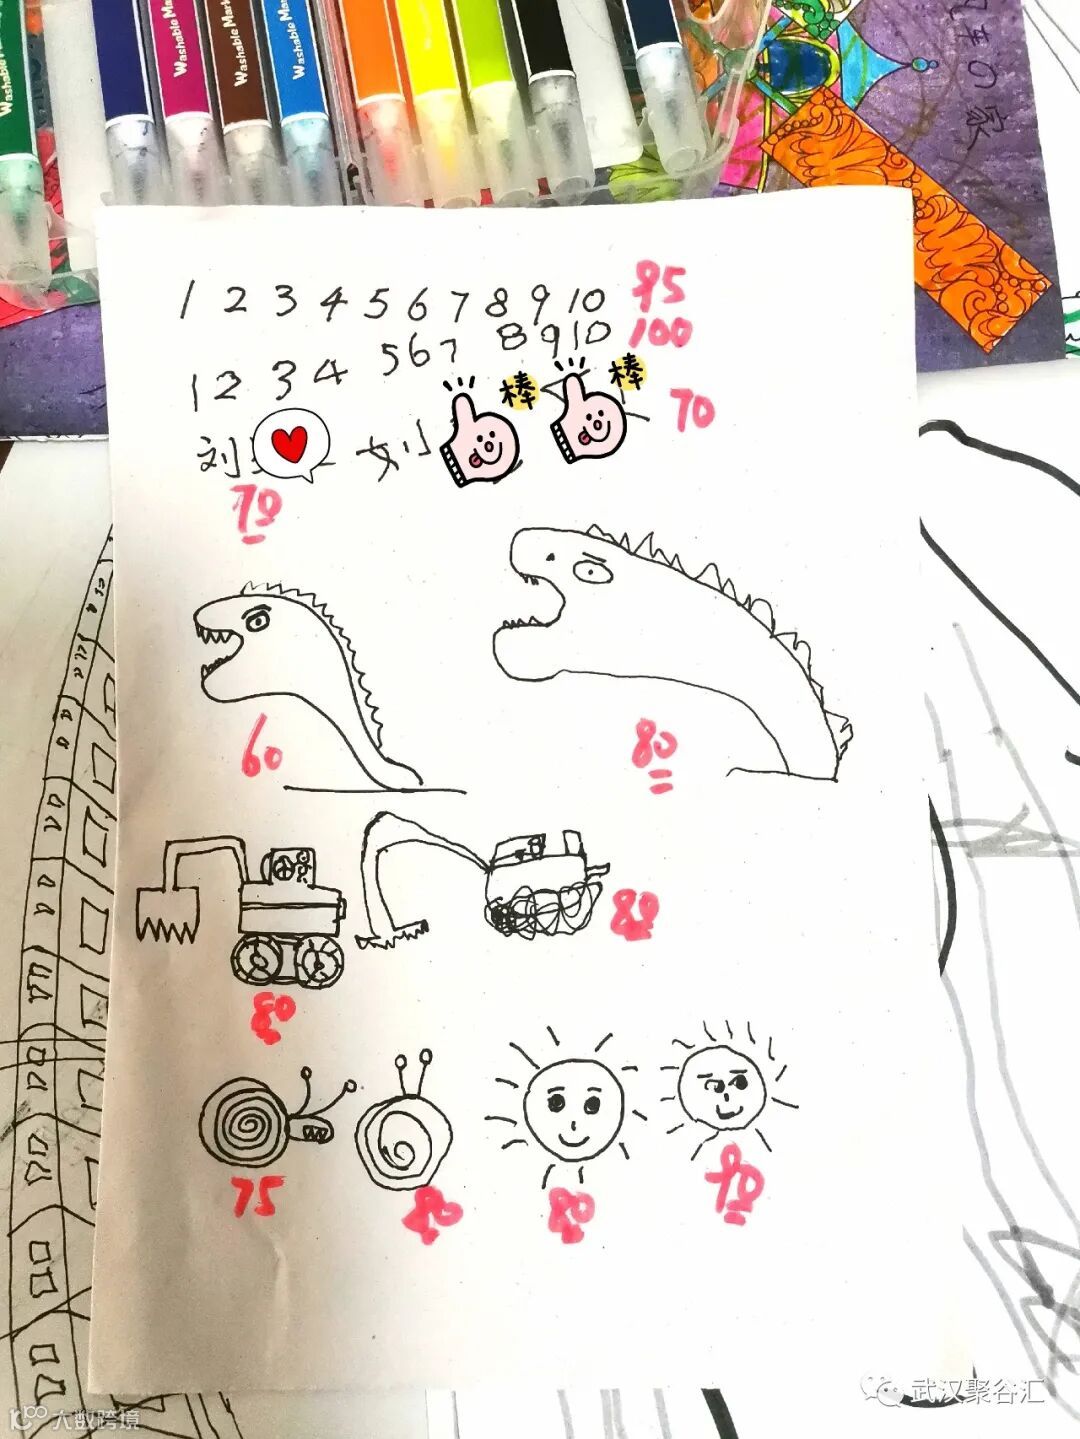 Washable Mark
Washable Mark
Washable Mark
Washable
の家
1 2 3 4 5 6 7 8 9 10 95
1 2 3 4 5 6 7 8 9 10 100
棒 棒
刘 刘小 70
70
60 80
80
80
75 80 80 90
武汉聚谷汇
大数跨境